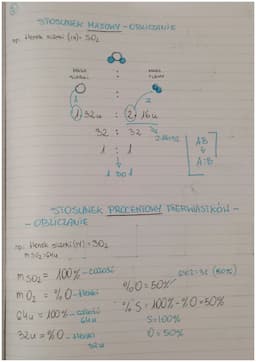 STOSUNEK MASOWY - OBLICZANIE
np. tlenek siarki (IV) = SO₂
MASA SIARKI : MASA TLENU
1 2
1·32u : 2·16u
32 : 32
1 : 1
1 DO 1
AB
A:B
STOSUNEK PROCENTOWY PIERWIASTKÓW -
- OBLICZANIE
np. tlenek siarki (IV) = SO₂
mSO₂ = 64u
mSO₂ = 100% - całość
mO₂ = %O - tlenki
64u = 100% - całość 64u
32u = %O - tlenki 32u
%O = 50%
%S = 100% - %O = 50%
S = 100%
O = 50%